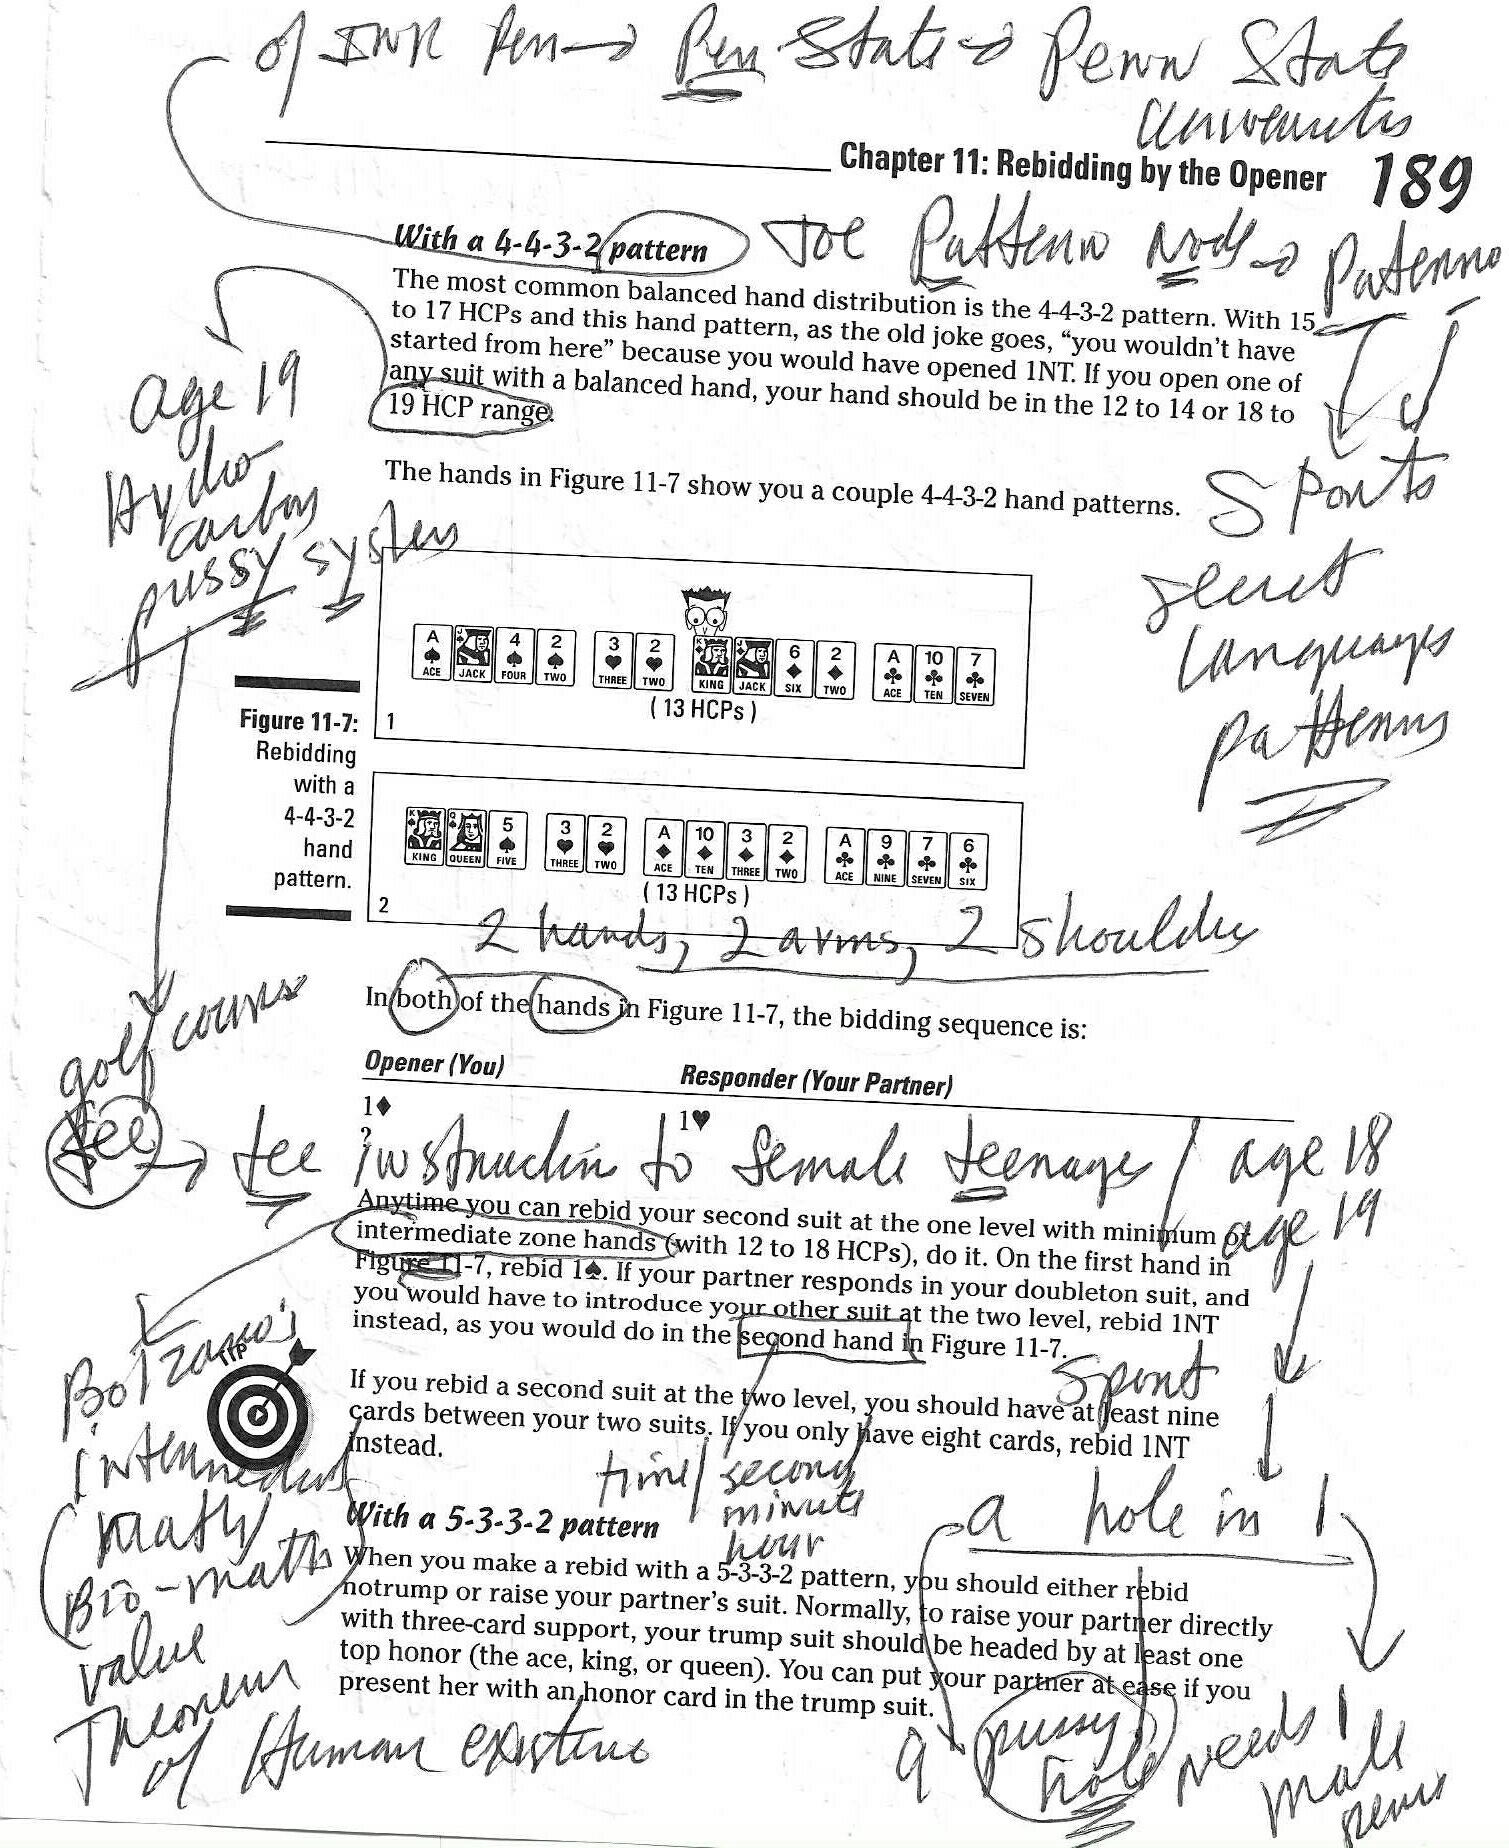 of INK Pen → Pen State → Penn State
University
Chapter 11: Rebidding by the Opener 189
With a 4-4-3-2 pattern
Joe Pattern Node → Patenno
The most common balanced hand distribution is the 4-4-3-2 pattern. With 15
to 17 HCPs and this hand pattern, as the old joke goes, “you wouldn’t have
started from here” because you would have opened 1NT. If you open one of
any suit with a balanced hand, your hand should be in the 12 to 14 or 18 to
19 HCP range.
age 19
Hydro-
carbon
pussy system
The hands in Figure 11-7 show you a couple 4-4-3-2 hand patterns.
Sports
secret
languages
patterns
A ACE J JACK 4 FOUR 2 TWO 3 THREE 2 TWO K KING J JACK 6 SIX 2 TWO A ACE 10 TEN 7 SEVEN
(13 HCPs)
1
Figure 11-7:
Rebidding
with a
4-4-3-2
hand
pattern.
K KING Q QUEEN 5 FIVE 3 THREE 2 TWO A ACE 10 TEN 3 THREE 2 TWO A ACE 9 NINE 7 SEVEN 6 SIX
(13 HCPs)
2
2 hands, 2 arms, 2 shoulders
In both of the hands in Figure 11-7, the bidding sequence is:
golf course
Opener (You) Responder (Your Partner)
1♦ 1♥
?
tee → tee instruction to female teenages / age 18
age 19
Anytime you can rebid your second suit at the one level with minimum or
intermediate zone hands (with 12 to 18 HCPs), do it. On the first hand in
Figure 11-7, rebid 1♠. If your partner responds in your doubleton suit, and
you would have to introduce your other suit at the two level, rebid 1NT
instead, as you would do in the second hand in Figure 11-7.
TIP
Sport
If you rebid a second suit at the two level, you should have at least nine
cards between your two suits. If you only have eight cards, rebid 1NT
instead.
time / second
minute
hour
a hole in 1
Bolzano's
intermediate
math
Bio-math
value
Theorem
of Human existence
With a 5-3-3-2 pattern
When you make a rebid with a 5-3-3-2 pattern, you should either rebid
notrump or raise your partner’s suit. Normally, to raise your partner directly
with three-card support, your trump suit should be headed by at least one
top honor (the ace, king, or queen). You can put your partner at ease if you
present her with an honor card in the trump suit.
a pussy
hole needs 1
male
penis